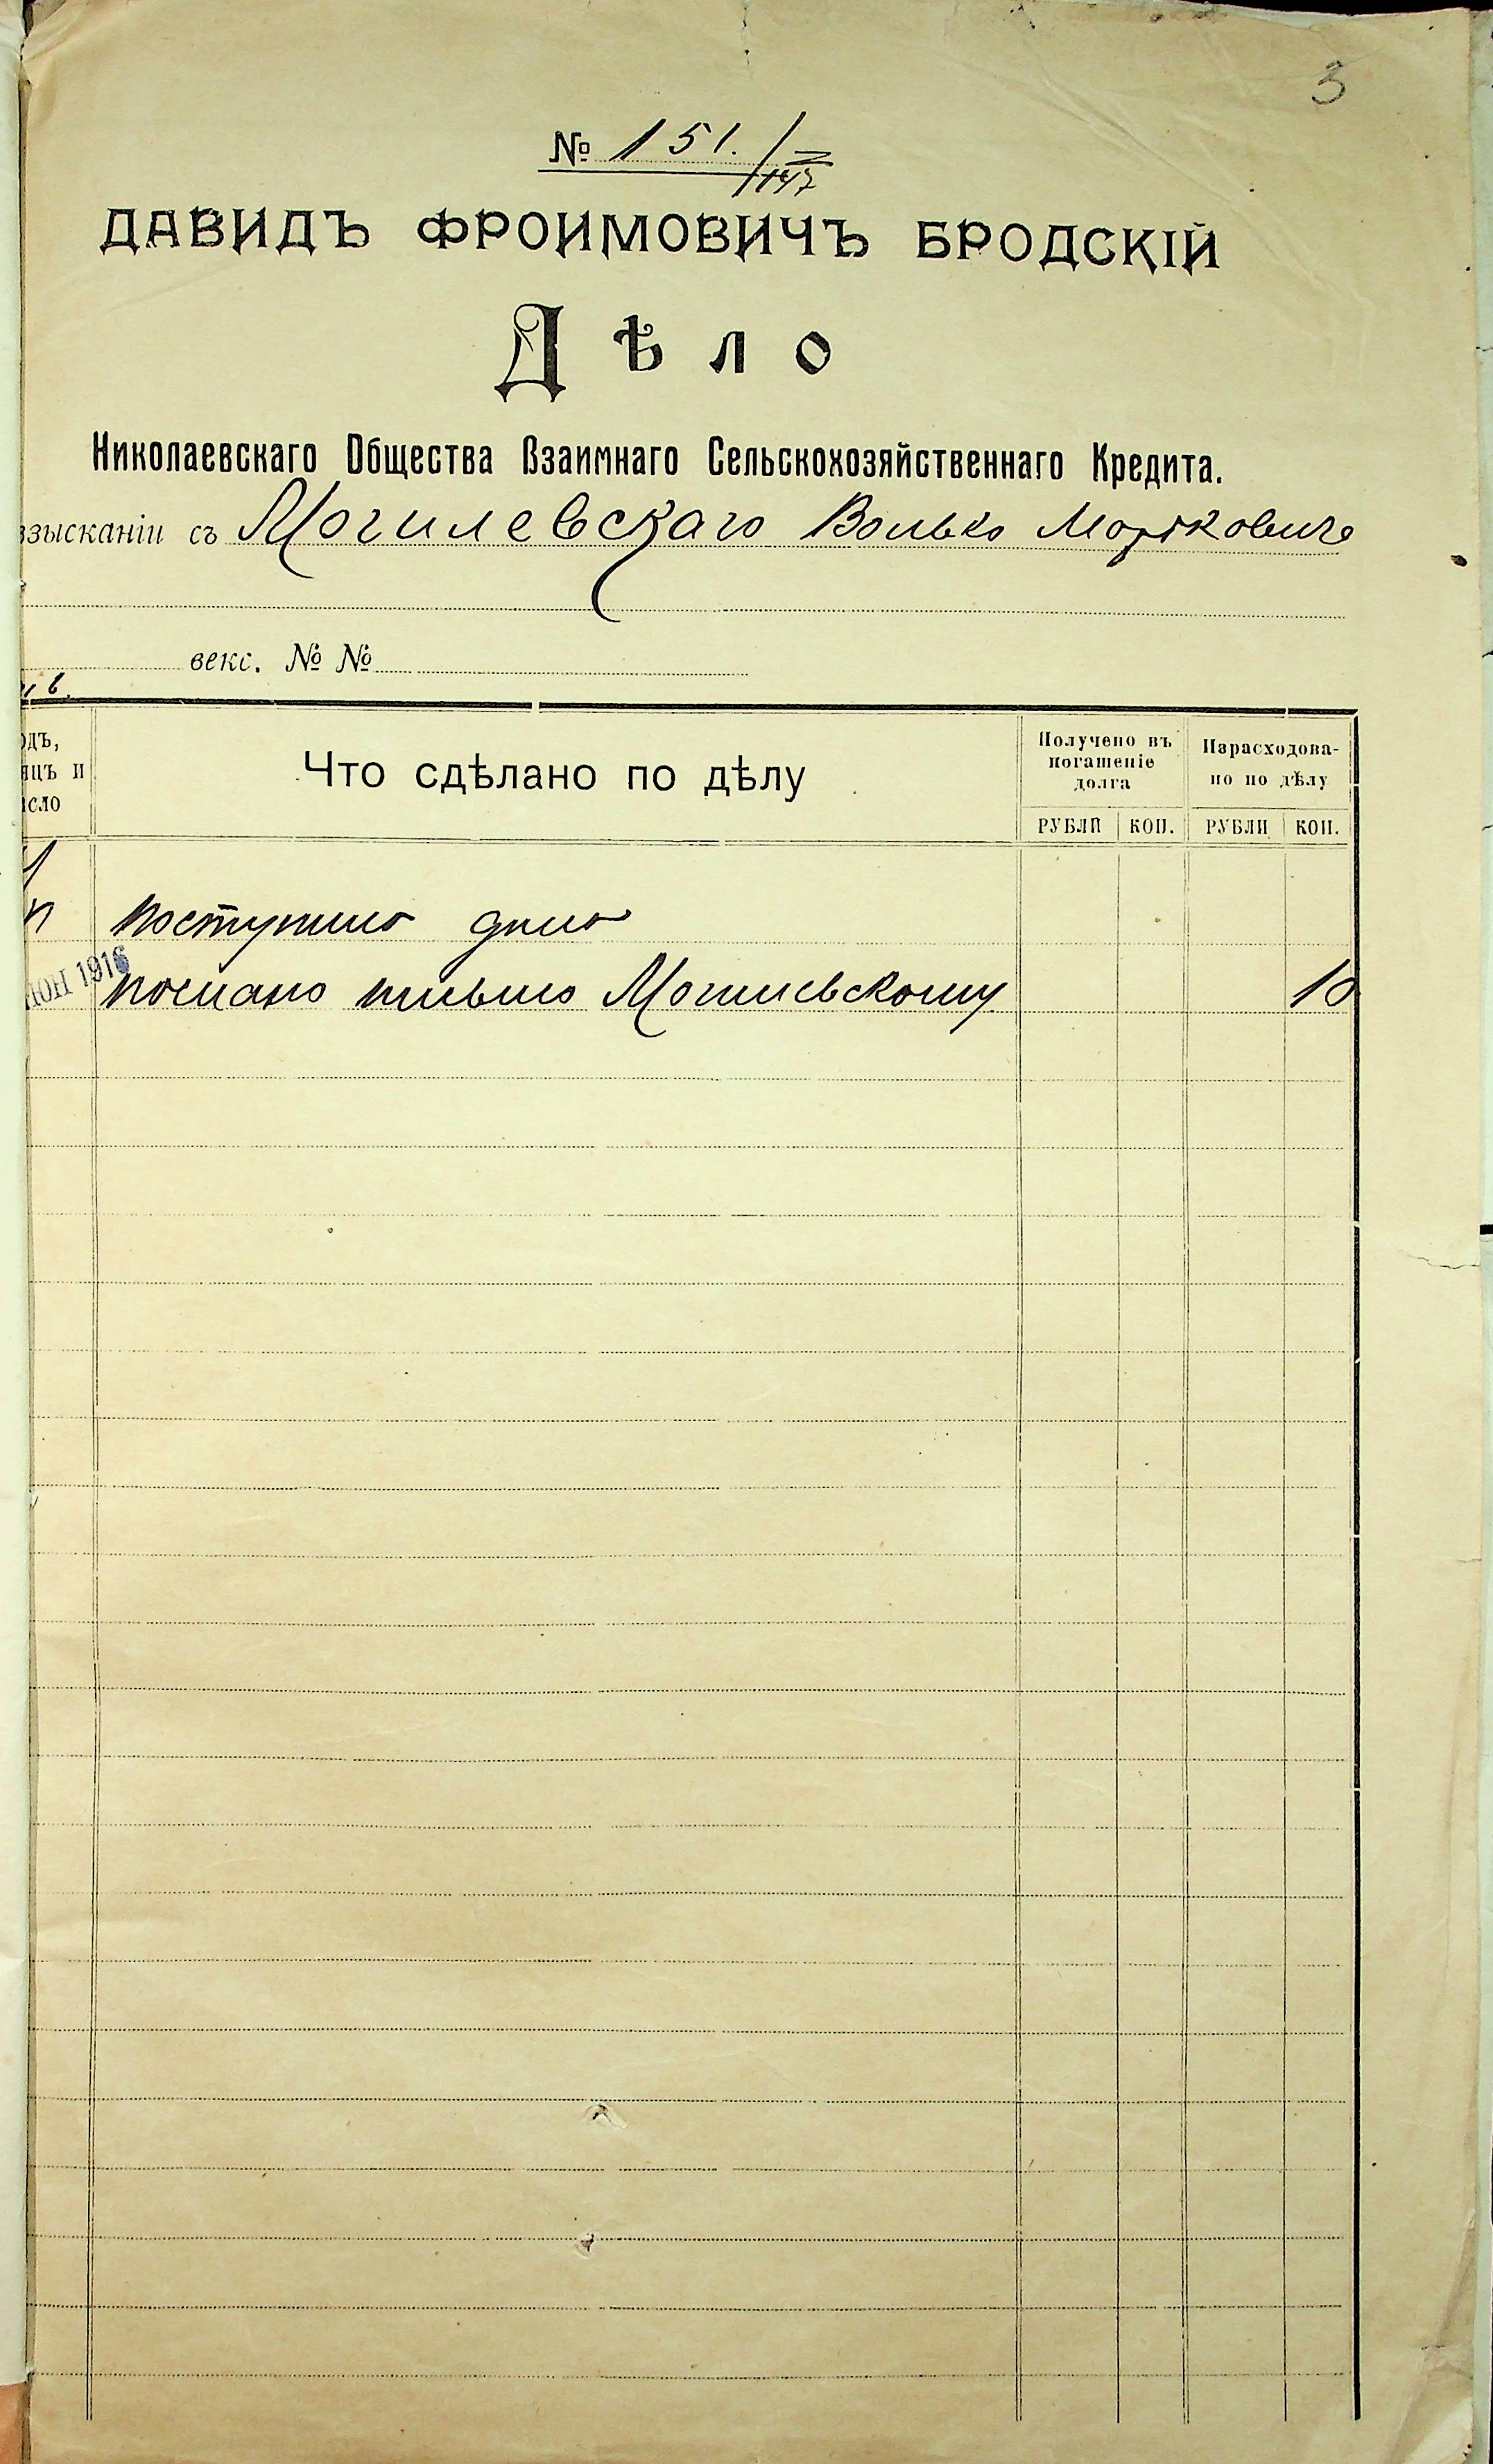 3
№ 151.
ДАВИДЪ ФРОИМОВИЧЪ БРОДСКІЙ
Дѣло
Николаевскаго Общества Взаимнаго Сельскохозяйственнаго Кредита.
взысканіи съ Могилевскаго Волько
векс. № №
одъ,
яцъ и
исло
Что сдѣлано по дѣлу
Получено въ
погашеніе
долга
Израсходова-
но по дѣлу
РУБЛИ КОП. РУБЛИ КОП.
поступило дело
ІЮН 1916 послано письмо Могилевскому 10